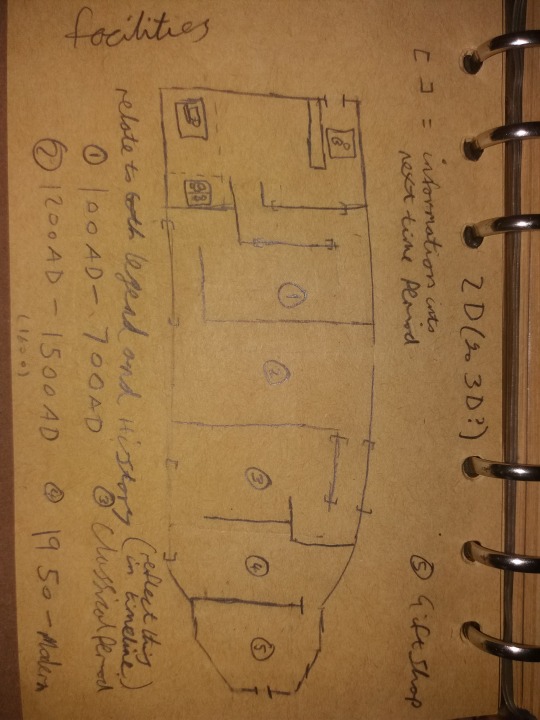 facilities
2D (so 3D?)
[ ] = information into
next time Period
⑤ Gift Shop
①
②
③
④
⑤
relate to both legend and History (reflect this
in timeline)
① 100AD - 700AD ③ Classical Period
② 1200AD - 1500AD ④ 1950 - Modern
(1600)